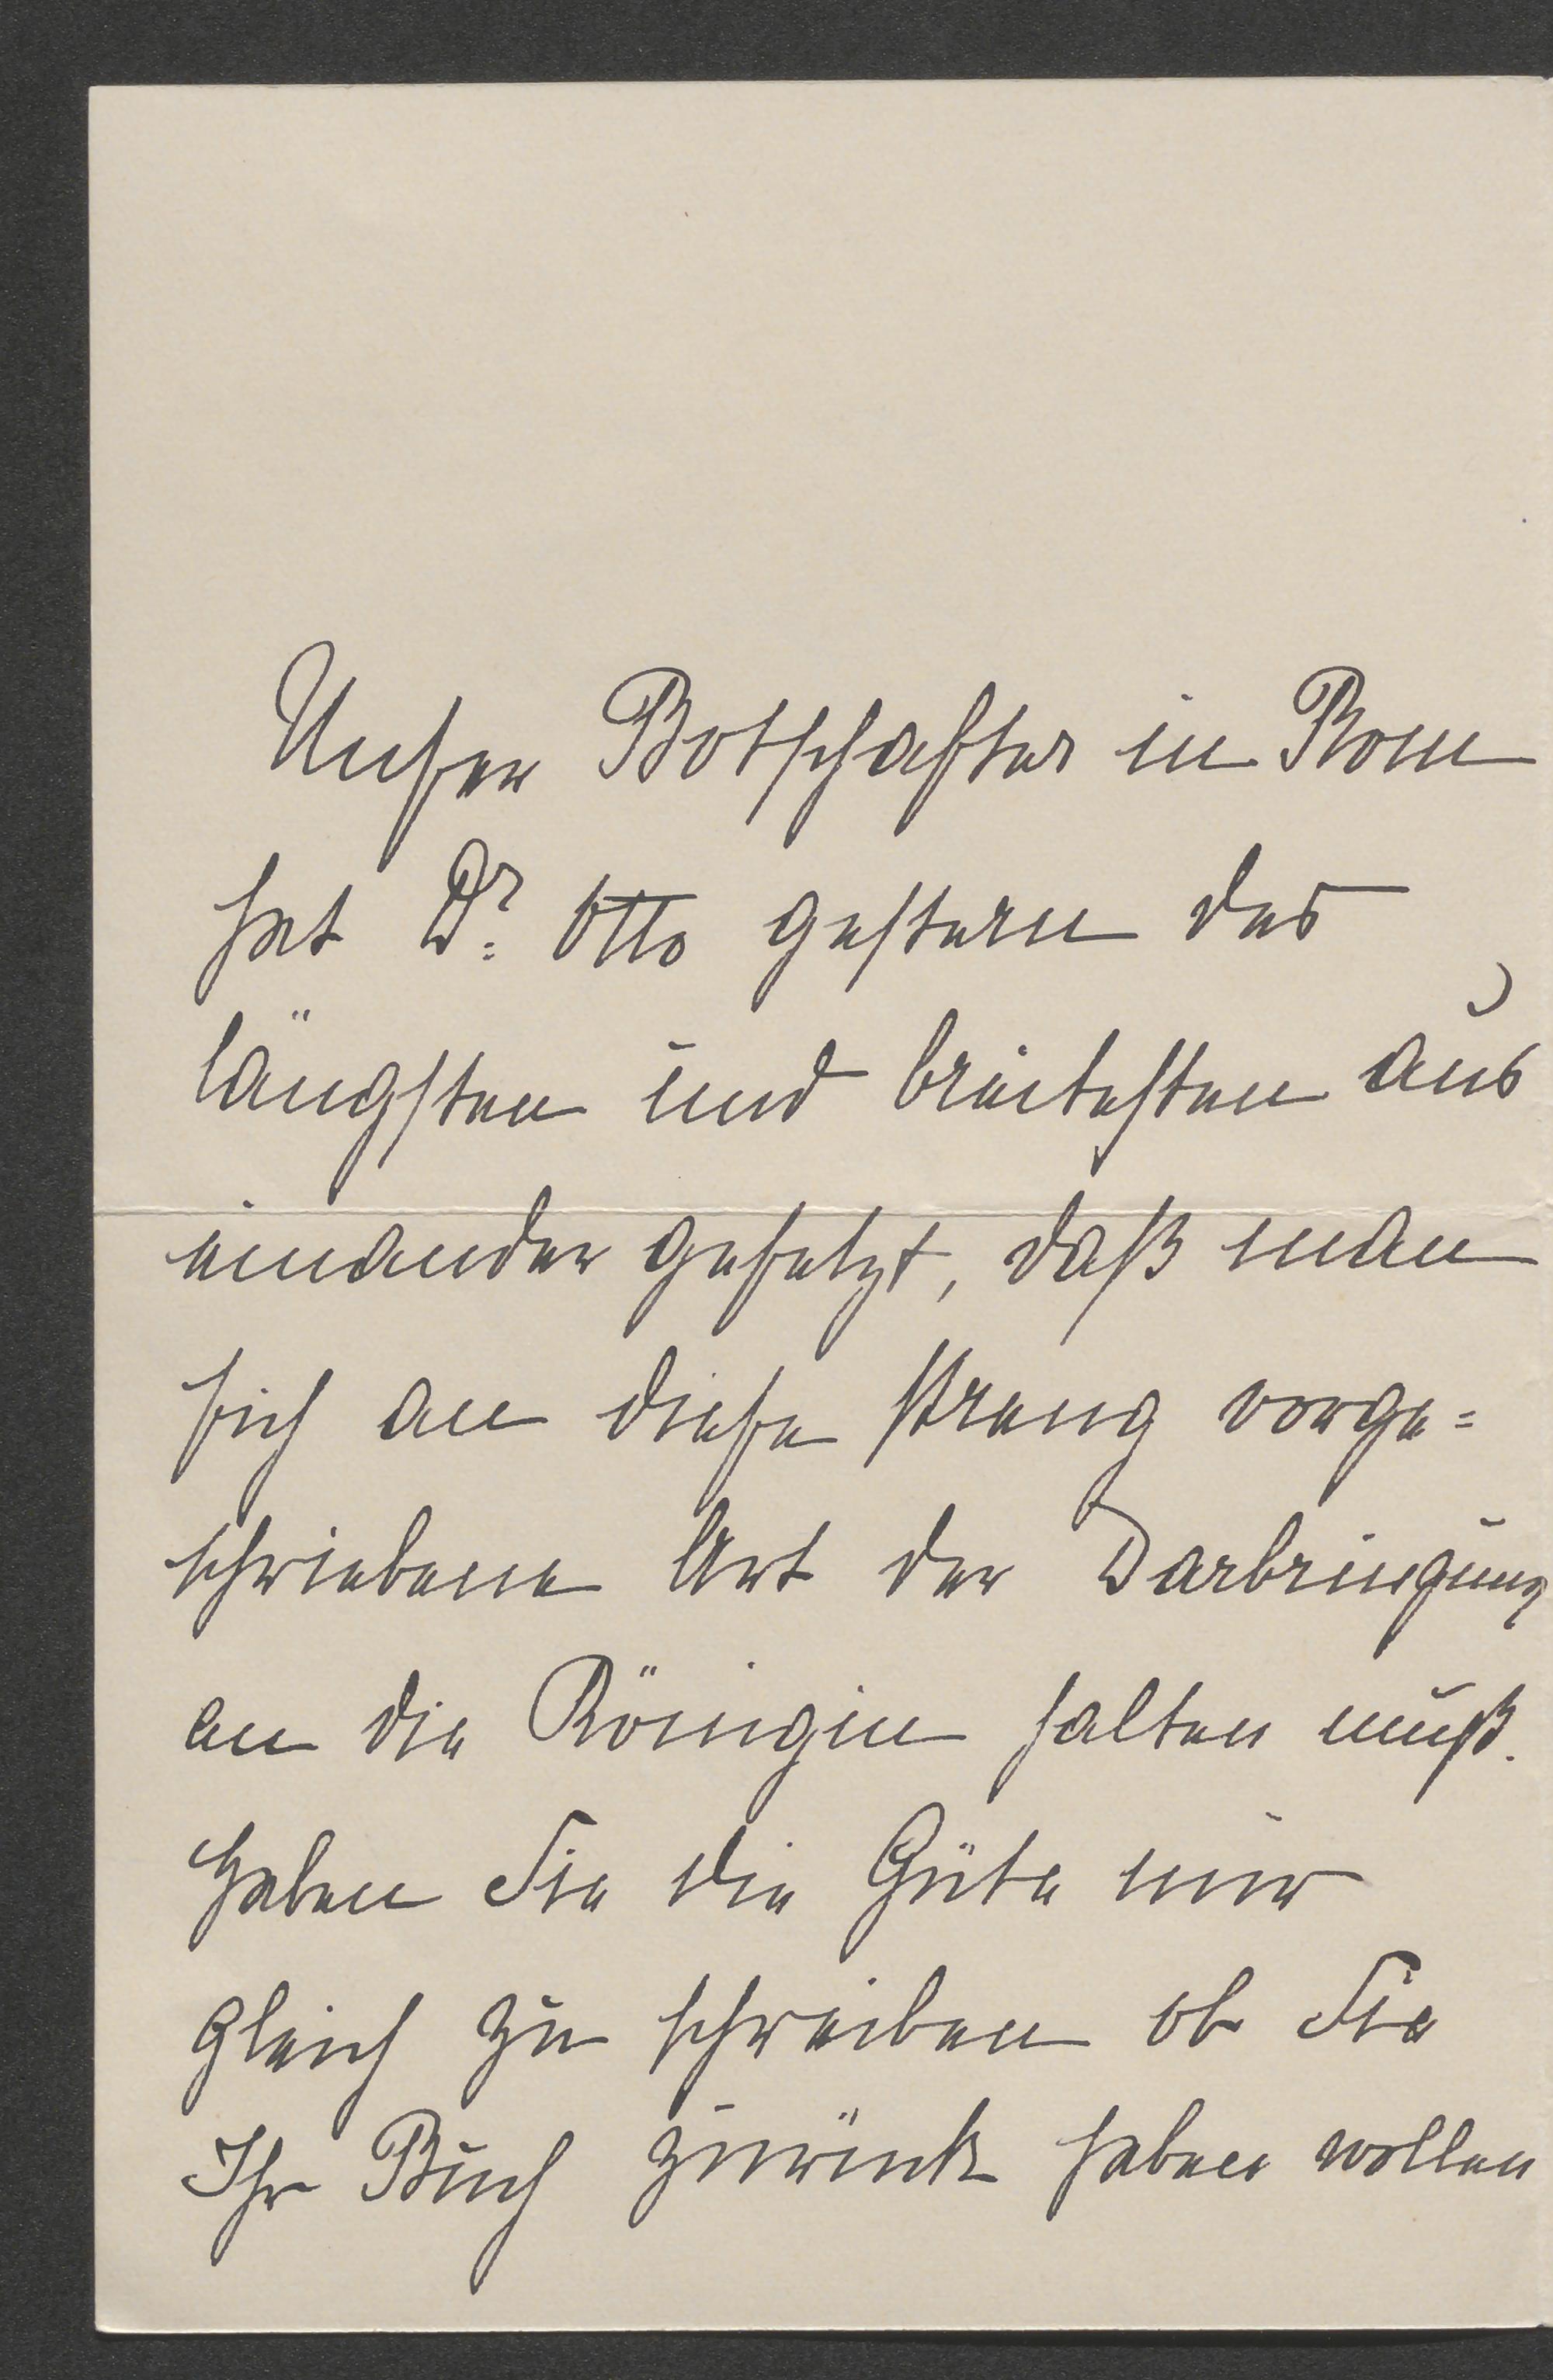 Unser Botschafter in Rom
hat Dr. Otto gestern des
längsten und breitesten aus
einander gesetzt, daß man
sich an diese streng vorge=
schriebene Art der Darbringung
an die Königin halten muß.
Haben Sie die Güte mir
gleich zu schreiben ob Sie
Ihr Buch zurück haben wollen